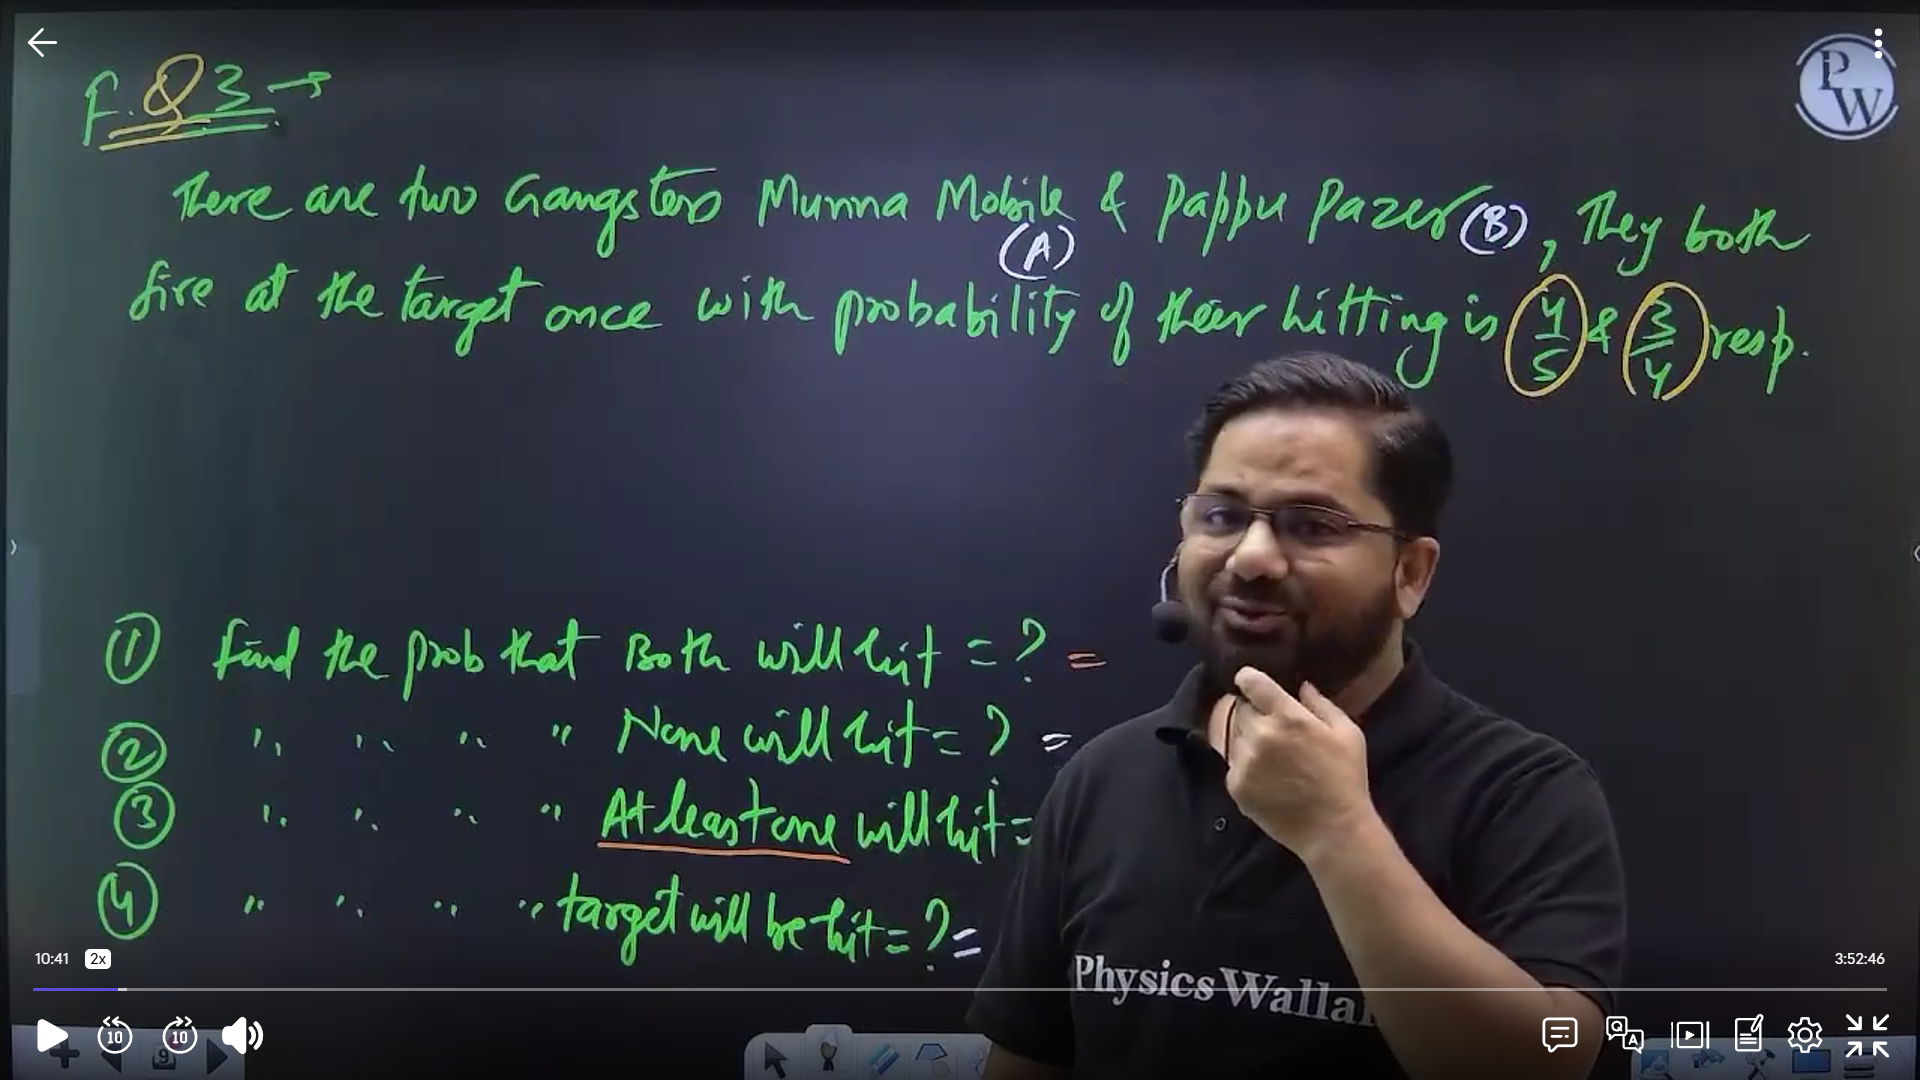 F. Q3 →
PW
There are two Gangsters Munna Mobile & Pappu Pazer (B), They both
(A)
fire at the target once with probability of their hitting is 4/5 & 3/4 resp.
① Find the prob that Both will hit = ? =
② " " " " None will hit = ? =
③ " " " " At least one will hit =
④ " " " " target will be hit = ? =
10:41 2x
3:52:46
Physics Walla
10 10
9